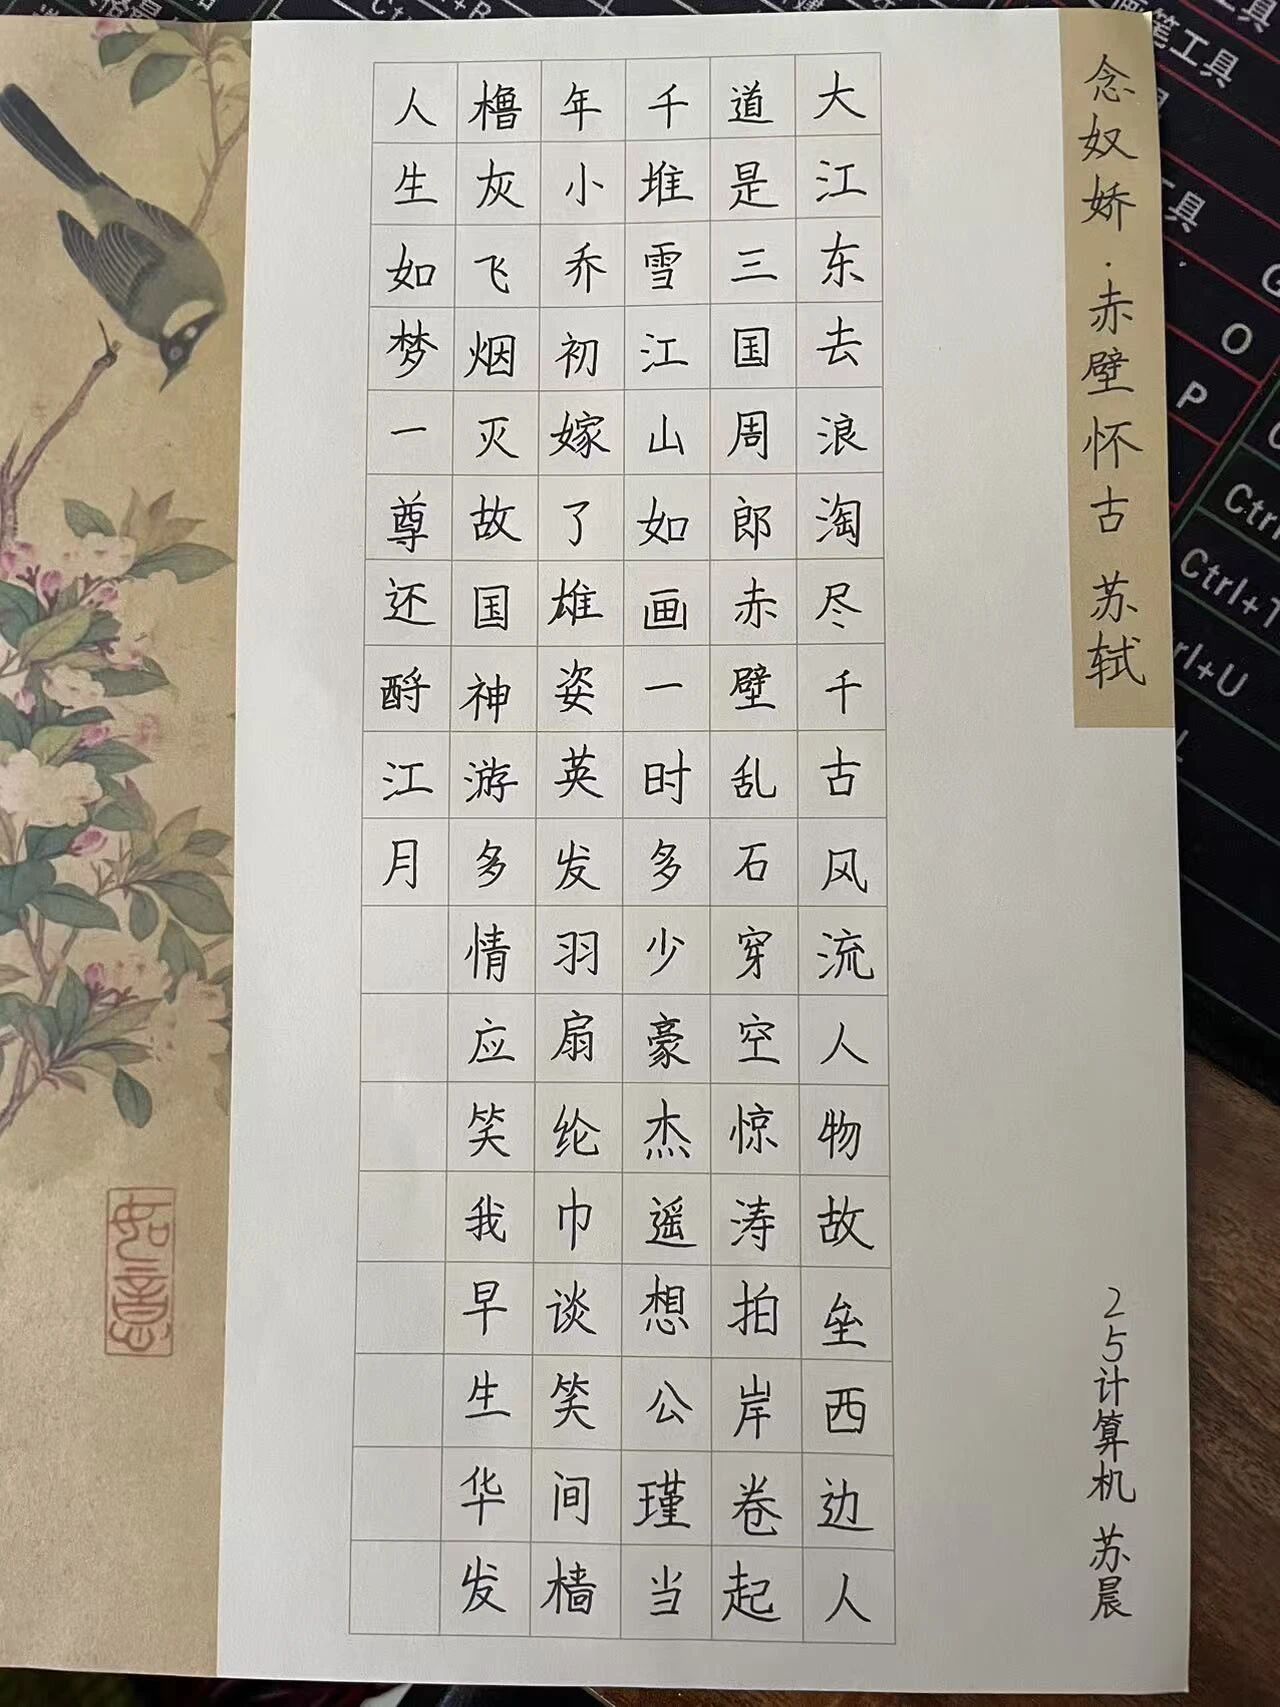 念奴娇·赤壁怀古 苏轼
大江东去浪淘尽千古风流人物故垒西边人
道是三国周郎赤壁乱石穿空惊涛拍岸卷起
千堆雪江山如画一时多少豪杰遥想公瑾当
年小乔初嫁了雄姿英发羽扇纶巾谈笑间樯
橹灰飞烟灭故国神游多情应笑我早生华发
人生如梦一尊还酹江月
25计算机 苏晨
如意
笔工具
工具
O
P
Ctrl+T
Ctrl+R